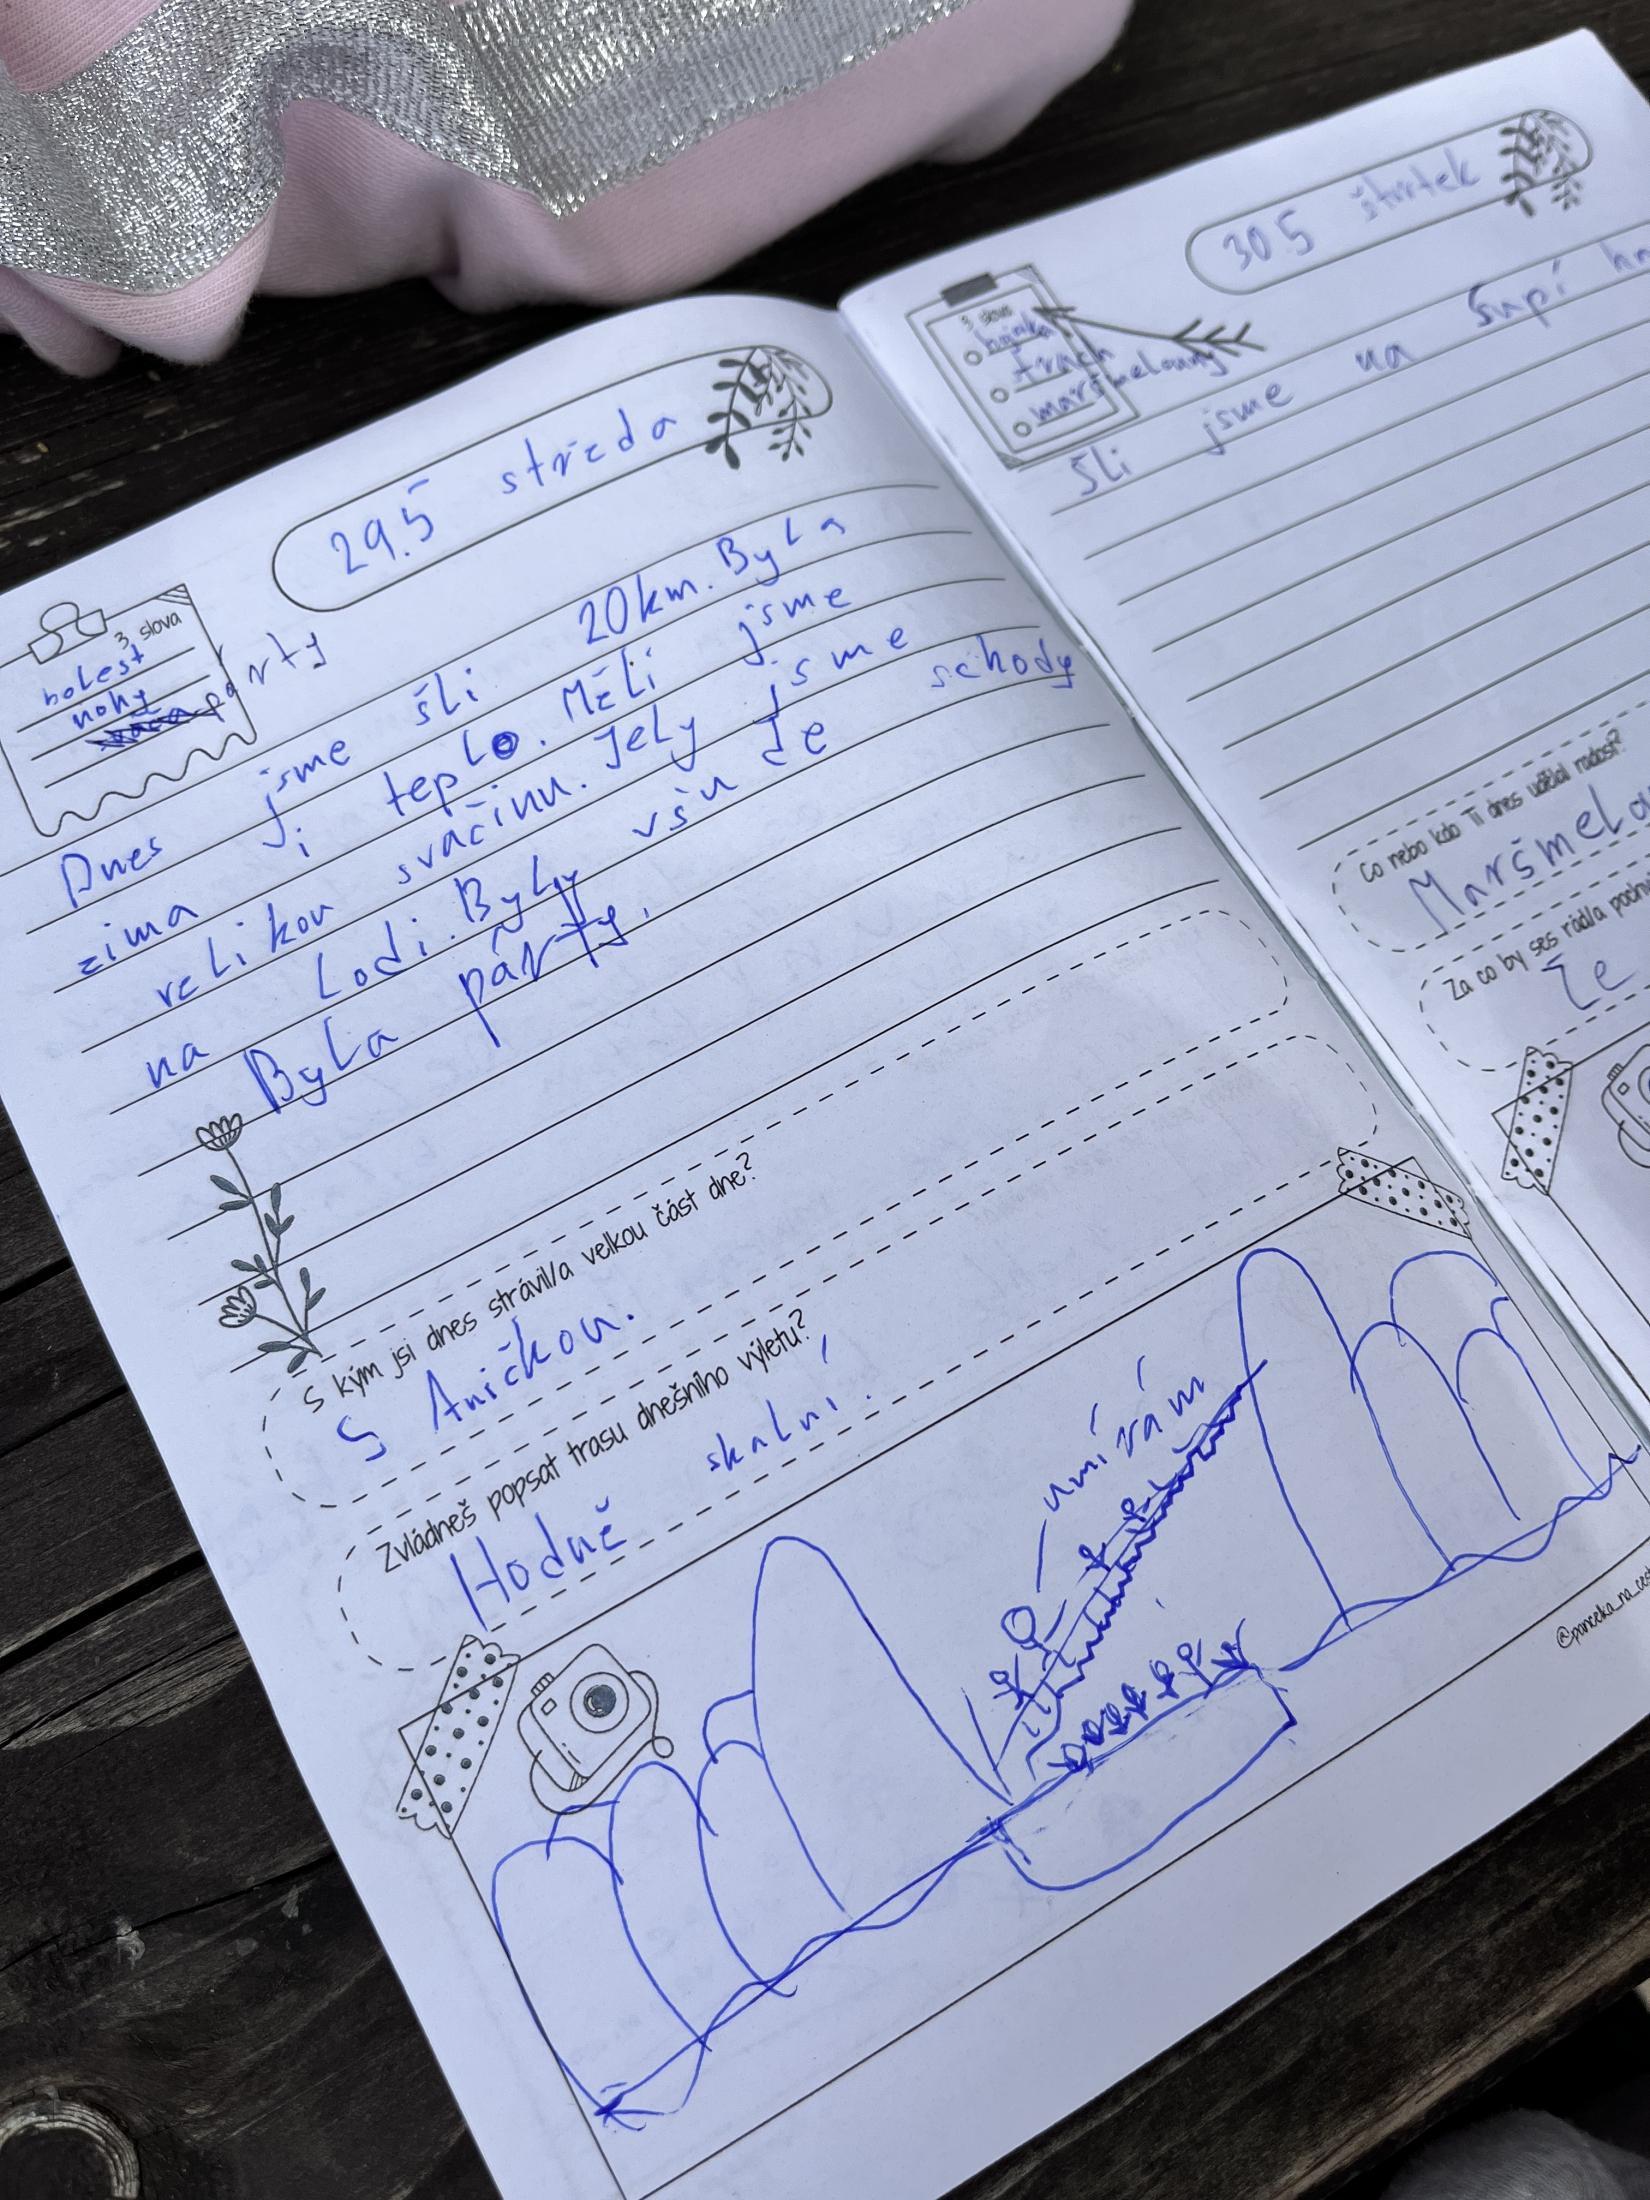 29.5 střėda
3 slova
bolest
nohy
párty
Dnes jsme šli 20km. Byla
zima i teplo. Měli jsme
velikou svačinu. Jely jsme
na lodi. Byly všude schody
Byla párty.
S kým jsi dnes strávil/a velkou část dne?
S Aničkou.
Zvládneš popsat trasu dnešního výletu?
Hodně skalní.
umírám
@panceka_na_cest
30.5 štvrtek
3 slova
bojala
strach
maršmelouny
Šli jsme na Supí
Co nebo kdo Ti dnes udělal radost?
Maršmelou
Za co by ses rád/a pochv
Že